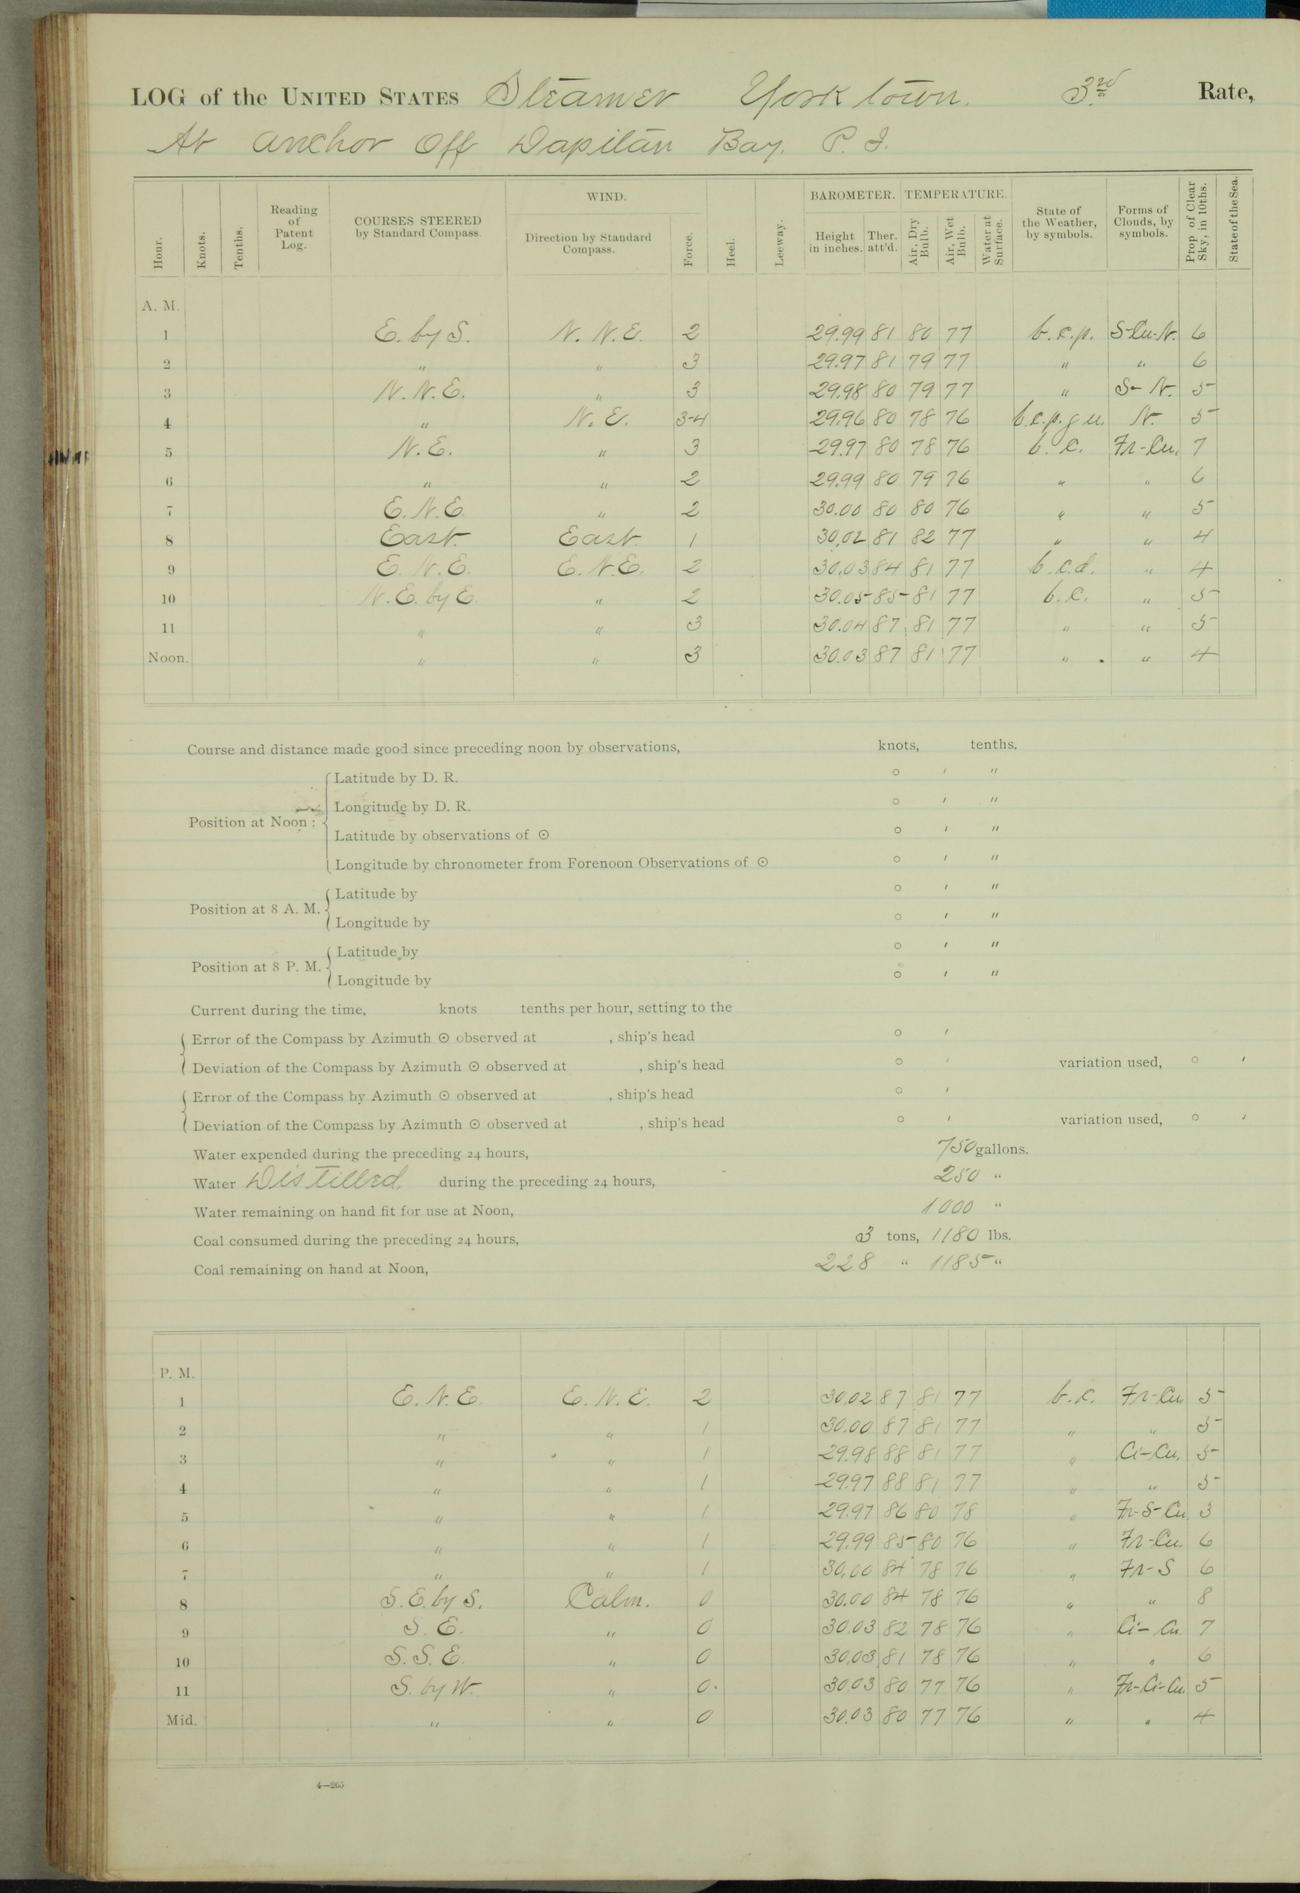 LOG of the UNITED STATES Steamer Yorktown. 3rd Rate,
At anchor off Dapitan Bay. P. I.
Hour. Knots. Tenths. Reading of Patent Log. COURSES STEERED by Standard Compass. WIND. Direction by Standard Compass. Force. Heel. Leeway. BAROMETER. Height in inches. Ther. att'd. TEMPERATURE. Air, Dry Bulb. Air, Wet Bulb. Water at Surface. State of the Weather, by symbols. Forms of Clouds, by symbols. Prop. of Clear Sky, in 10ths. State of the Sea.
A. M.
1 E. by S. N. N. E. 2 29.99 81 80 77 b.c.p. S-Cu-N. 6
2 " " 3 29.97 81 79 77 " " 6
3 N. N. E. " 3 29.98 80 79 77 " S-N. 5
4 " N. E. 3-4 29.96 80 78 76 b.c.p.g.u. N. 5
5 N. E. " 3 29.97 80 78 76 b. c. Fr-Cu. 7
6 " " 2 29.99 80 79 76 " " 6
7 E. N. E. " 2 30.00 80 80 76 " " 5
8 East. East. 1 30.02 81 82 77 " " 4
9 E. N. E. E. N. E. 2 30.03 84 81 77 b.c.d. " 4
10 N. E. by E. " 2 30.05 85 81 77 b.c. " 5
11 " " 3 30.04 87 81 77 " " 5
Noon. " " 3 30.03 87 81 77 " " 4
Course and distance made good since preceding noon by observations, knots, tenths.
Position at Noon: Latitude by D. R. ° ' "
Longitude by D. R. ° ' "
Latitude by observations of ☉ ° ' "
Longitude by chronometer from Forenoon Observations of ☉ ° ' "
Position at 8 A. M. Latitude by ° ' "
Longitude by ° ' "
Position at 8 P. M. Latitude by ° ' "
Longitude by ° ' "
Current during the time, knots tenths per hour, setting to the
Error of the Compass by Azimuth ☉ observed at , ship's head ° '
Deviation of the Compass by Azimuth ☉ observed at , ship's head ° ' variation used, ° '
Error of the Compass by Azimuth ☉ observed at , ship's head ° '
Deviation of the Compass by Azimuth ☉ observed at , ship's head ° ' variation used, ° '
Water expended during the preceding 24 hours, 750 gallons.
Water Distilled during the preceding 24 hours, 250 "
Water remaining on hand fit for use at Noon, 1000 "
Coal consumed during the preceding 24 hours, 3 tons, 1180 lbs.
Coal remaining on hand at Noon, 228 " 1185 "
P. M.
1 E. N. E. E. N. E. 2 30.02 87 81 77 b.c. Fr-Cu. 5
2 " " 1 30.00 87 81 77 " " 5
3 " " 1 29.98 88 81 77 " Ci-Cu. 5
4 " " 1 29.97 88 81 77 " " 5
5 " " 1 29.97 86 80 78 " Fr-S-Cu. 3
6 " " 1 29.99 85 80 76 " Fr-Cu. 6
7 " " 1 30.00 84 78 76 " Fr-S 6
8 S. E. by S. Calm. 0 30.00 84 78 76 " " 8
9 S. E. " 0 30.03 82 78 76 " Ci-Cu. 7
10 S. S. E. " 0 30.03 81 78 76 " " 6
11 S. by W. " 0. 30.03 80 77 76 " Fr-Ci-Cu. 5
Mid. " " 0 30.03 80 77 76 " " 4
4—265